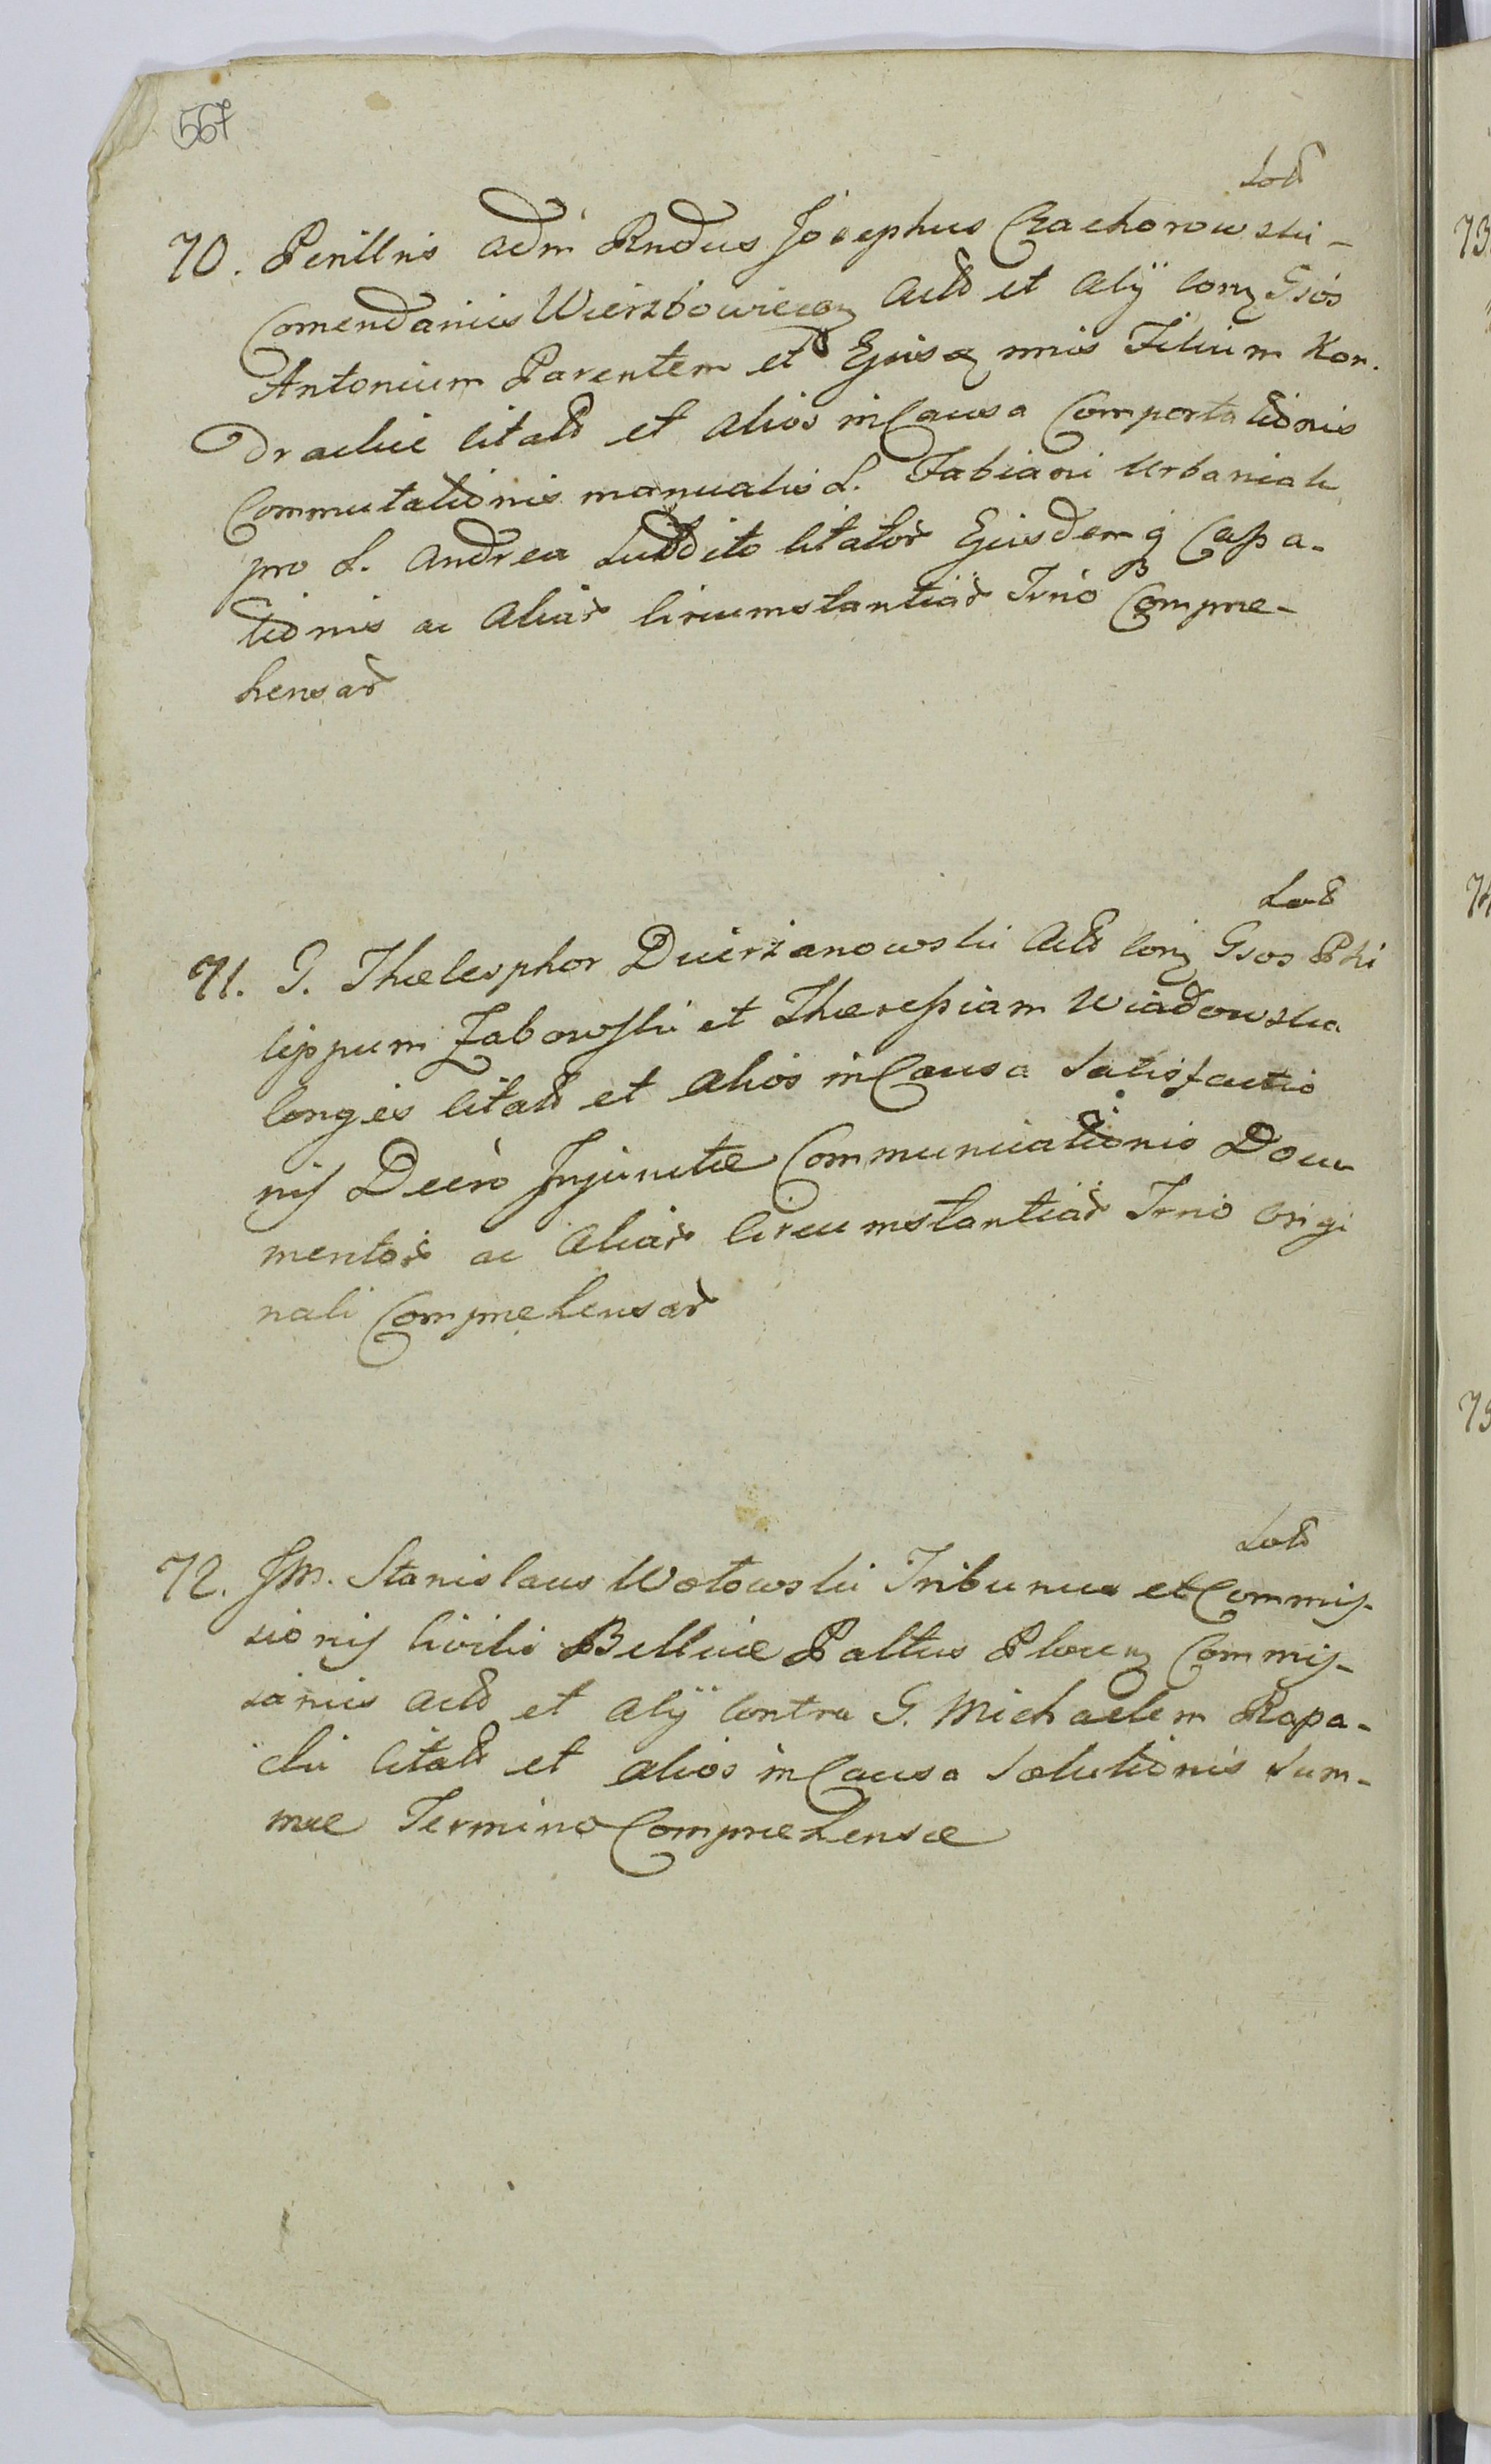 567
Lod
70. Perillris adm Rndus Josephus Czachorowski -
Comendarius Wierzbowiecen Actd et Alÿ conz Gsos
Antonium Parentem et Ejusq mis Filium Kon.
dradue Citatd et Alios in Causa Comportationis
Commutationis manualis L. Fabiani Urbaniak
pro L. Andrea Subdito Citator Ejusdemq Cassa-
tionis ac Aliar Circumstantiar Trno Compre-
hensar
Lod
71. G. Thelesphor Dzierzanowski Actd conz Gsos Phi
lippum Zabowski et Theressiam Wiadowska
Conges Citatd et Alios in Causa Satisfactio
nis Decro Injunctæ Communicationis Docu
mentor ac Aliar Circumstantiar Trno Origi
nali Compræhensar
Lod
72. JM. Stanislaus Wołowski Tribunus et Commis-
sionis Civilis Bellicæ Paltus Plocen Commis-
sarius Actd et Alÿ Contra G. Michaelem Rapa-
cki Citatd et Alios in Causa Solutionis Sum-
mæ Termino Compræhensæ
73
74
75